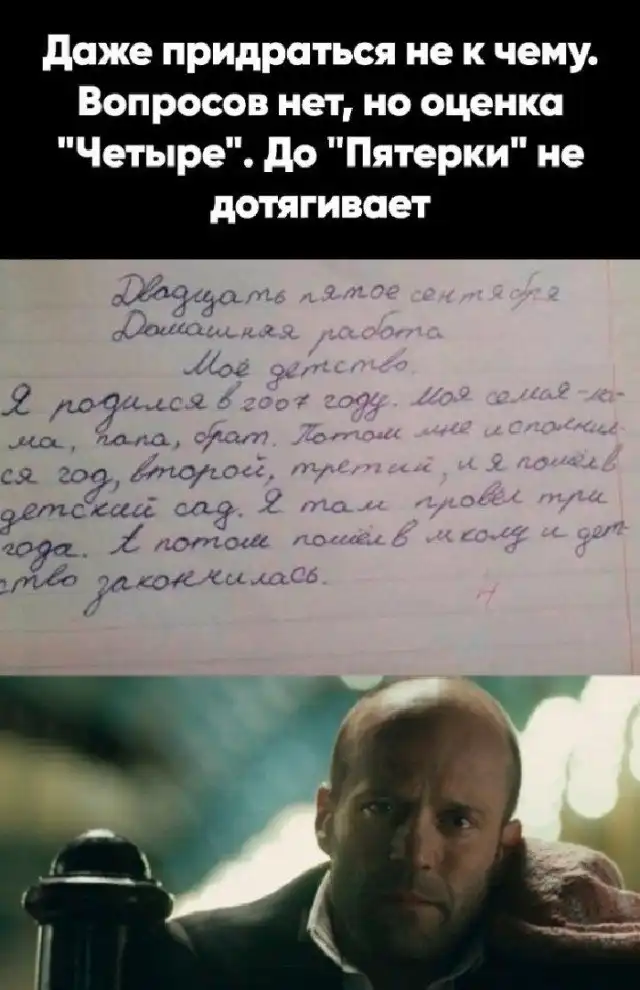 Даже придраться не к чему.
Вопросов нет, но оценка
"Четыре". До "Пятерки" не
дотягивает
Двадцать пятое сентября
Домашняя работа
Моё детство.
Я родился в 2007 году. Моя семья - ма-
ма, папа, брат. Потом мне исполнил-
ся год, второй, третий, и я пошёл в
детский сад. Я там провёл три
года. А потом пошёл в школу и дет-
ство закончилась.